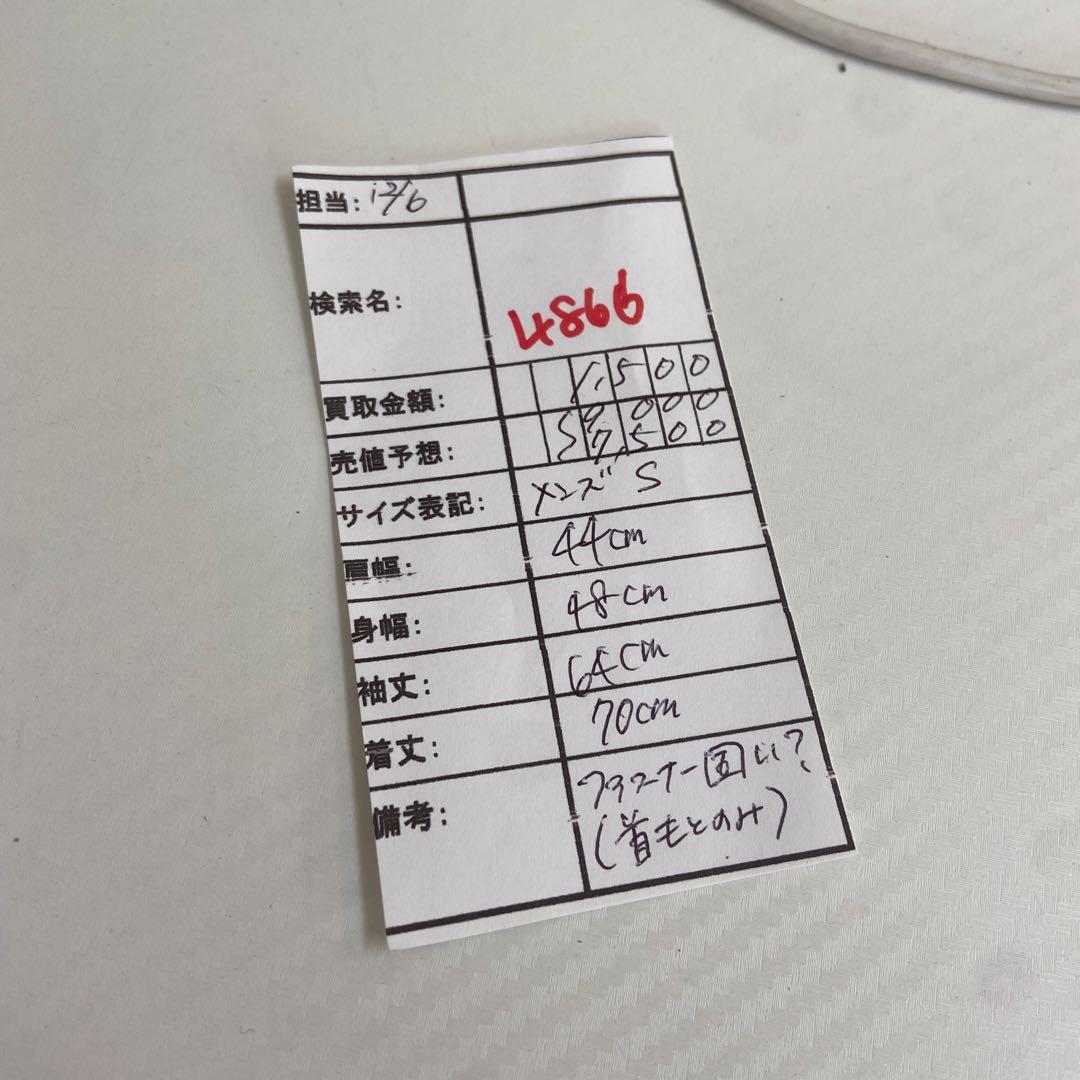 担当: 12/6
検索名: 4866
買取金額: 1,500
売値予想: 59,000
57,500
サイズ表記: メンズ S
肩幅: 44cm
身幅: 48cm
袖丈: 64cm
着丈: 70cm
備考: ファスナー固い?
(首もとのみ)